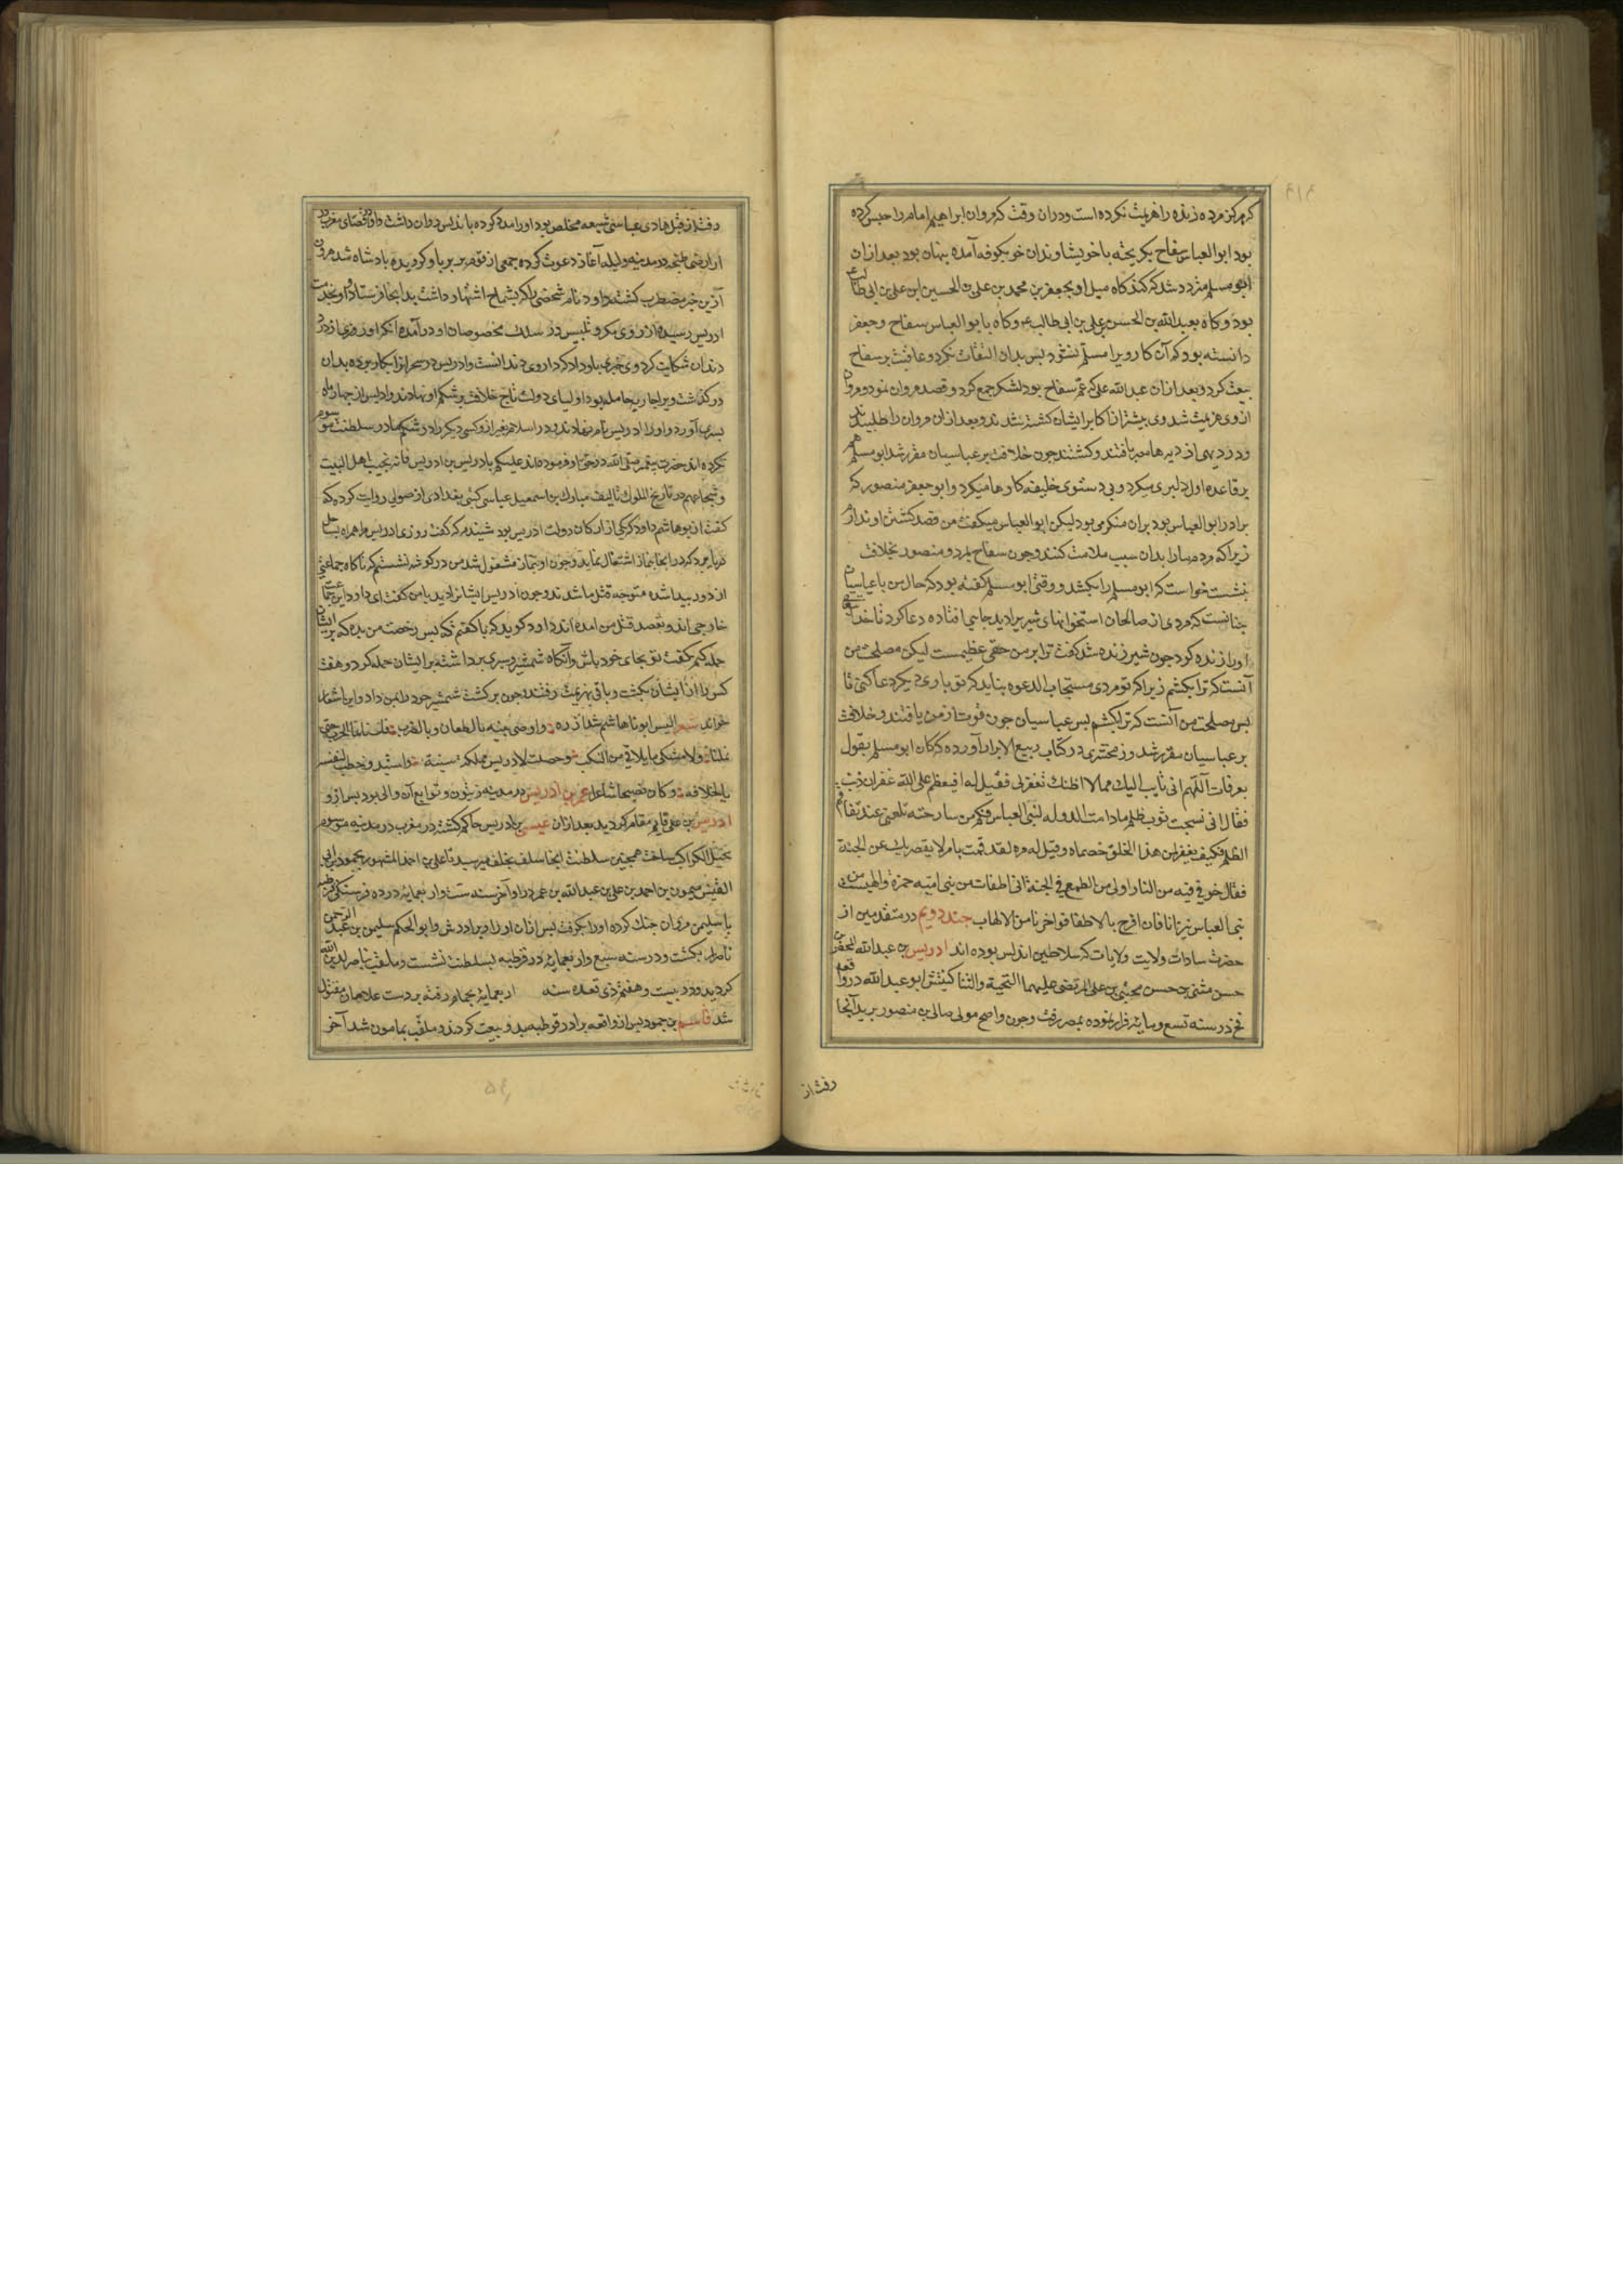 که هرکز مرده زنده را هزیمت نکرده است و دران وقت که مروان ابراهیم امام را حبس کرده
بود ابوالعباس سفاح بکریخته باخویشاوندان خود بکوفه آمده پنهان بود بعد ازان
ابومسلم متردد شد که کند کاه میل او بجعفر بن محمد بن علی بن الحسین ابن علی بن ابی طالب
بود و کاه بعبدالله بن الحسن بن علی بن ابی طالب و کاه بابو العباس سفاح و جعفر
دانسته بود که آن کار ویرا مسلم نشود پس بدان التفات نکرد و عاقبت بر سفاح
بیعت کرد و بعد ازان عبدالله علی که عم سفاح بود لشکر جمع کرد و قصد مروان نمود و مروان
از وی هزیمت شد و بیشتر از اکابر ایشان کشته شدند و بعد ازان مروان را طلبیدند
و در دیهی از دیه های مصر یافتند و کشتند چون خلافت بر عباسیان مقرر شد ابو مسلم هم
بر قاعده اول دلیری میکرد و بی دستوری خلیفه کارها میکرد و ابو جعفر منصور که
برادر ابو العباس بود بران منکر می بود لیکن ابو العباس میکفت من قصد کشتن او ندارم
زیرا که مردم مارا بدان سبب ملامت کنند و چون سفاح بمرد و منصور بخلافت
بنشست خواست که ابو مسلم را بکشد و وقتی ابو مسلم کفته بود که حال من با عباسیان
چنانست که مردی از صالحان استخوانهای شیر بر ادید جایی افتاده دعا کرد تا خدای تعالی
اورا زنده کرد چون شیر زنده شد کفت ترا بر من حقی عظیمست لیکن مصلحت من
آنست که ترا بکشم زیرا که تو مردی مستجاب الدعوه نباید که تو باری دیکر دعا کنی تا
پس مصلحت من آنست که ترا بکشم پس عباسیان چون قوت از من یافتند و خلافت
بر عباسیان مقرر شد و زمخشری در کتاب ربیع الابرار آورده که کان ابو مسلم یقول
بعرفات اللهم انی تایب الیک مما لا اظنک تغفر لی فقیل له افیعظم علی الله غفران ذنب
فقال انی نسجت ثوب ظلم مادامت الدوله لبنی العباس فکم من صارخة تلعنی عند تفاقم
الظلم فکیف یغفر لمن هذا الخلق خصماه و قیل له مره لقد قمت بامر لا یقصر بک عن الجنة
فقال خوفی فیه من النار اولی من الطمع فی الجنة انی اطفات من بنی امیه جمرة و الهبت من
بنی العباس نیرانا فان افرح بالاطفا فواحزنا من الالهاب جند دویم در متقدمین از
حضرت سادات ولایت ولایات که سلاطین اندلس بوده اند ادریس بن عبدالله المحض بن
حسن مثنی بن حسن مجتبی بن علی المرتضی علیهما التحیة و الثنا کنیتش ابو عبدالله در واقعه
فخ در سنه تسع و مایه فرار نموده بمصر رفت و چون واضح مولی صالح بن منصور برید آنجا
رفت از
رفت از قبل هادی عباسی شیعه مخلص بود اورا مدد کرده باندلس روان داشت و او در اقصای مغرب در
اراضی طنجه در مدینه ولیله آغاز دعوت کرده جمعی از قوم بربر باو کرویده پادشاه شد هرون
ازین خبر مضطرب کشته داود نام شخصی را که بشماخ اشتهار داشت بدانجا فرستاد و او بخدمت
ادریس رسیده از روی مکر و تلبیس در سلک مخصوصان او در آمده انکه او روزی از درد
دندان شکایت کرد وی چیزی باو داد که داروی دندانست و ادریس در سحر انرا بکار برده بدان
درکذشت ویرا جاریه حامله بود اولیای دولت تاج خلافت بر شکم او نهادند و او پس از چهار ماه
پسری آورد و اورا ادریس نام نهادند و در اسلام غیر از و کسی دیکر را در شکم مادر سلطنت موسوم
نکرده اند حضرت پیغمبر صلی الله در حق او فرموده اند علیکم بادریس بن ادریس فانه نجیب اهل البیت
و شجاعهم در تاریخ الملوک تالیف مبارک بن اسمعیل عباسی کتبی بغدادی از صولی روایت کرده که
کفت از بو هاشم داود که یکی از ارکان دولت ادریس بود شنیدم که کفت روزی ادریس مرا همراه بساحل
دریا برد که در انجا بنماز اشتغال نماید و چون او بنماز مشغول شد من در کوشه نشستم که ناکاه جماعتی
از دور پیدا شد متوجه قتل ما شدند و چون ادریس ایشانرا دید با من کفت ای داود این جماعت
خارجی اند و بقصد قتل من امده اند داود کوید که باو کفتم که پس رخصت من بده که بر ایشان
حمله کنم کفت تو بجای خود باش و آنکاه شمشیر و سپری برداشته بر ایشان حمله کرد و هفت
کس را از ایشان بکشت و باقی بهزیمت رفتند چون برکشت شمشیر خود را بمن داد و این اشعار
خواند شعر الیس ابونا هاشم شد ازره و اوصی بنیه بالطعان و بالضرب فلسنا نمل الحرب حتی
تملنا و لا نشتکی مما یلاقی من النکب و حصلت لادریس مملکه سنیة و استبد و خطب لنفسه
بالخلافه و کان فصیحا شاعرا عمر بن ادریس در مدینه زیتون و توابع آن والی بود پس ازو
ادریس بن علی قایم مقام کردید بعد ازان عیسی بن ادریس حاکم کشته در مغرب در مدینه موسوم
بجبل الکواکب ساخت همچنین سلطنت انجا سلف بخلف میرسید تا علی بن احمد المشهور بحمود بن ابی
القیس میمون بن احمد بن علی بن عبدالله بن عمر در اواخر سنه ست و اربعمایه در ده فرسنکی قرطبه
با سلیمن مروان جنک کرده اورا بکرفت پس از ان اورا و برادرش و ابو الحکم سلیمن بن عبد الرحمن
ناصر را بکشت و در سنه سبع و اربعمایه در قرطبه بسلطنت نشست و ملقب بناصر لدین الله
کردید و در بیست و هفتم ذی قعده سنه اربعمایه بحمام رفته بر دست غلامان مقتول
شد قاسم بن حمود پس از واقعه برادر در قرطبه بدو بیعت کردند و ملقب بمامون شد آخر